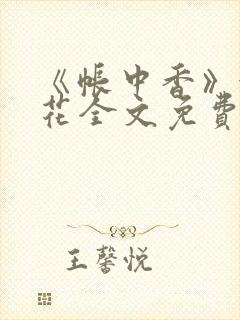 《帐中香》
花全文免费
王馨悦